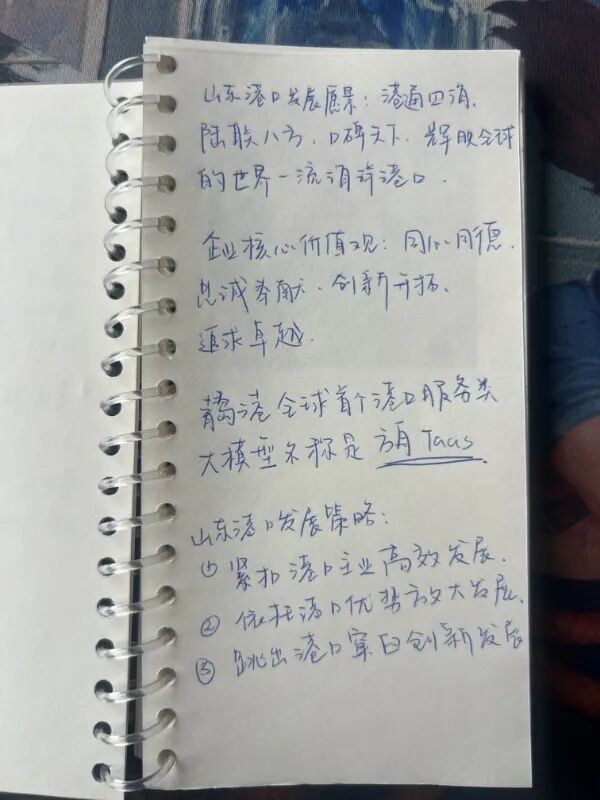 山东港口发展愿景：港通四海、
陆联八方、口碑天下、辉映全球
的世界一流海洋港口．
企业核心价值观：同心同德、
忠诚奉献、创新开拓、
追求卓越．
全球首个港口服务类
大模型名称是 Taas．
山东港口发展策略：
① 紧扣港口主业高效发展．
② 依托港口优势放大发展、
③ 跳出港口窠臼创新发展